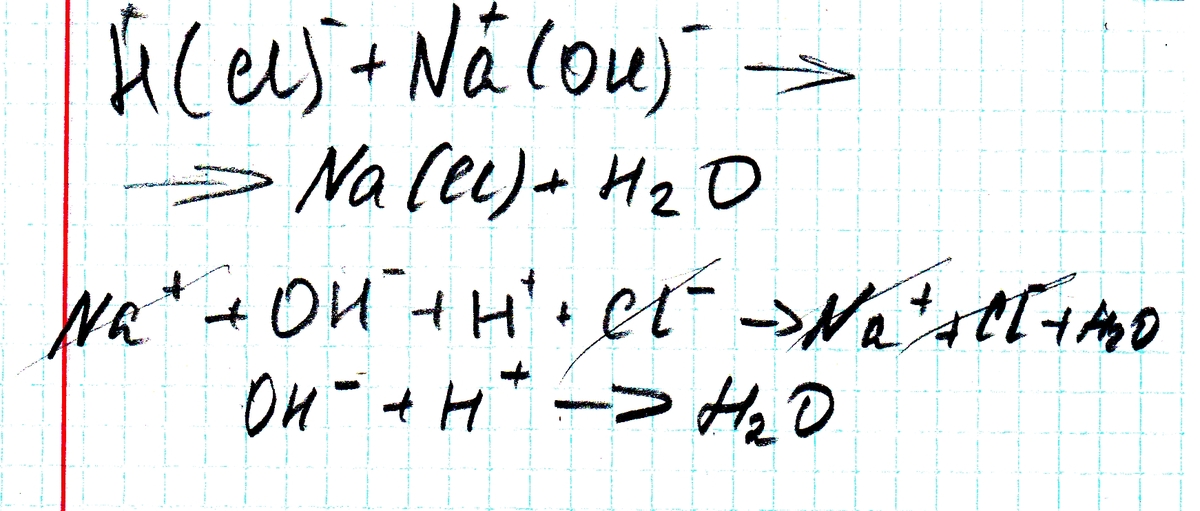 H⁺(Cl)⁻ + Na⁺(OH)⁻ →
→ Na(Cl) + H₂O
Na⁺ + OH⁻ + H⁺ + Cl⁻ → Na⁺ + Cl⁻ + H₂O
OH⁻ + H⁺ → H₂O